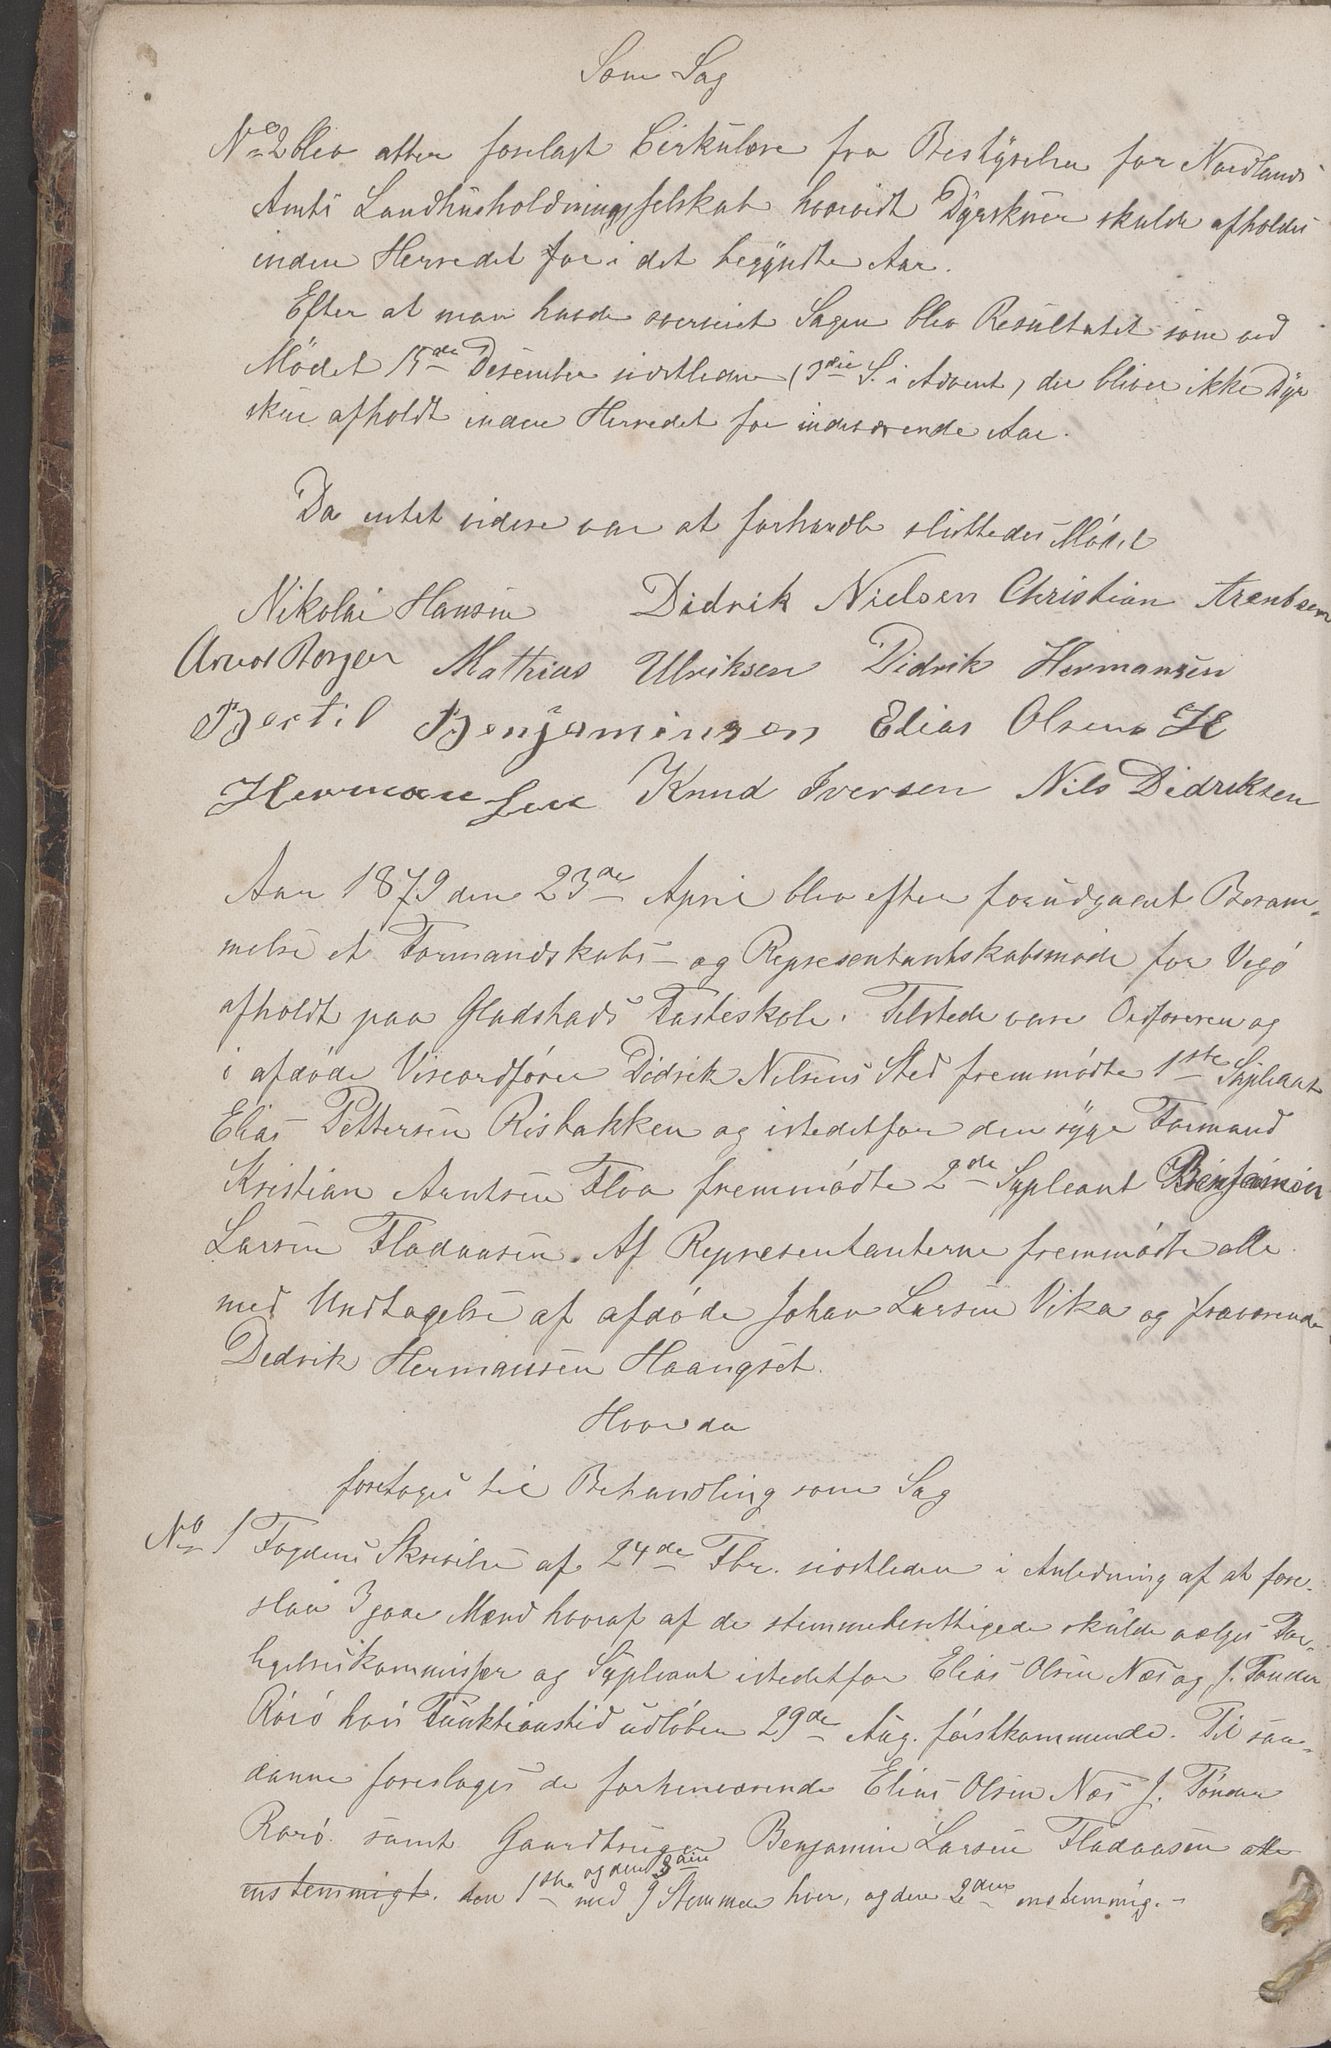 Som Sag
No 2 blev atter forelagt Cirkulære fra Bestyrelsen for Nordlands
Amts Landhusholdningsselskab hvorvidt Dyrskuer skulde afholdes
inden Herredet for i det begyndte Aar.
Efter at man havde overveiet Sagen blev Resultatet som ved
Mødet 15de Desember sidstleden (3die S. i Advent) der bliver ikke Dyr
skue afholdt inden Herredet for indeværende Aar.
Da intet videre var at forhandle sluttedes Mødet
Nikolai Hansen Didrik Nielsen Christian Arentsen
Arnol Borgen Mathias Ulriksen Didrik Hermansen
Bertil Benjaminsen Elias Olsen H
Hermansen Knud Iversen Nils Didriksen
Aar 1879 den 23de April blev efter forudgaaent Beram-
melse et Formandskabs- og Representantskabsmøde for Vegø
afholdt paa Gladstads Fasteskole. Tilstede vare Ordføreren og
i afdøde Viseordfører Didrik Nilsens Sted fremmødte 1ste Supleant
Elias Pettersen Risbakken og istedetfor den syge Formand
Kristian Arntsen Floa fremmødte 2de Supleant Benjamin
Larsen Fladaasen. Af Representanterne fremmødte alle
med Undtagelse af afdøde Johan Larsen Vika og fraværende
Dedrik Hermansen Haangset.
Hvor da
foretoges til Behandling som Sag
No 1 Fogdens Skrivelse af 24de Fbr. sidstleden i Anledning af at fore-
slaa 3 gode Mænd hvoraf af de stemmeberettigede skulde vælges For-
ligelseskommissær og Supleant istedetfor Elias Olsen Næs og J. Tønder
Rørø hvis Funktionstid udløber 29de Aug. førstkommende. Til saa-
danne foresloges de forhenværende Elias Olsen Næs J. Tønder
Rørø samt Gaardbruger Benjamin Larsen Fladaasen alle
enstemmigt. den 1ste og den 3die med 9 Stemmer hver, og den 2den enstemmig.